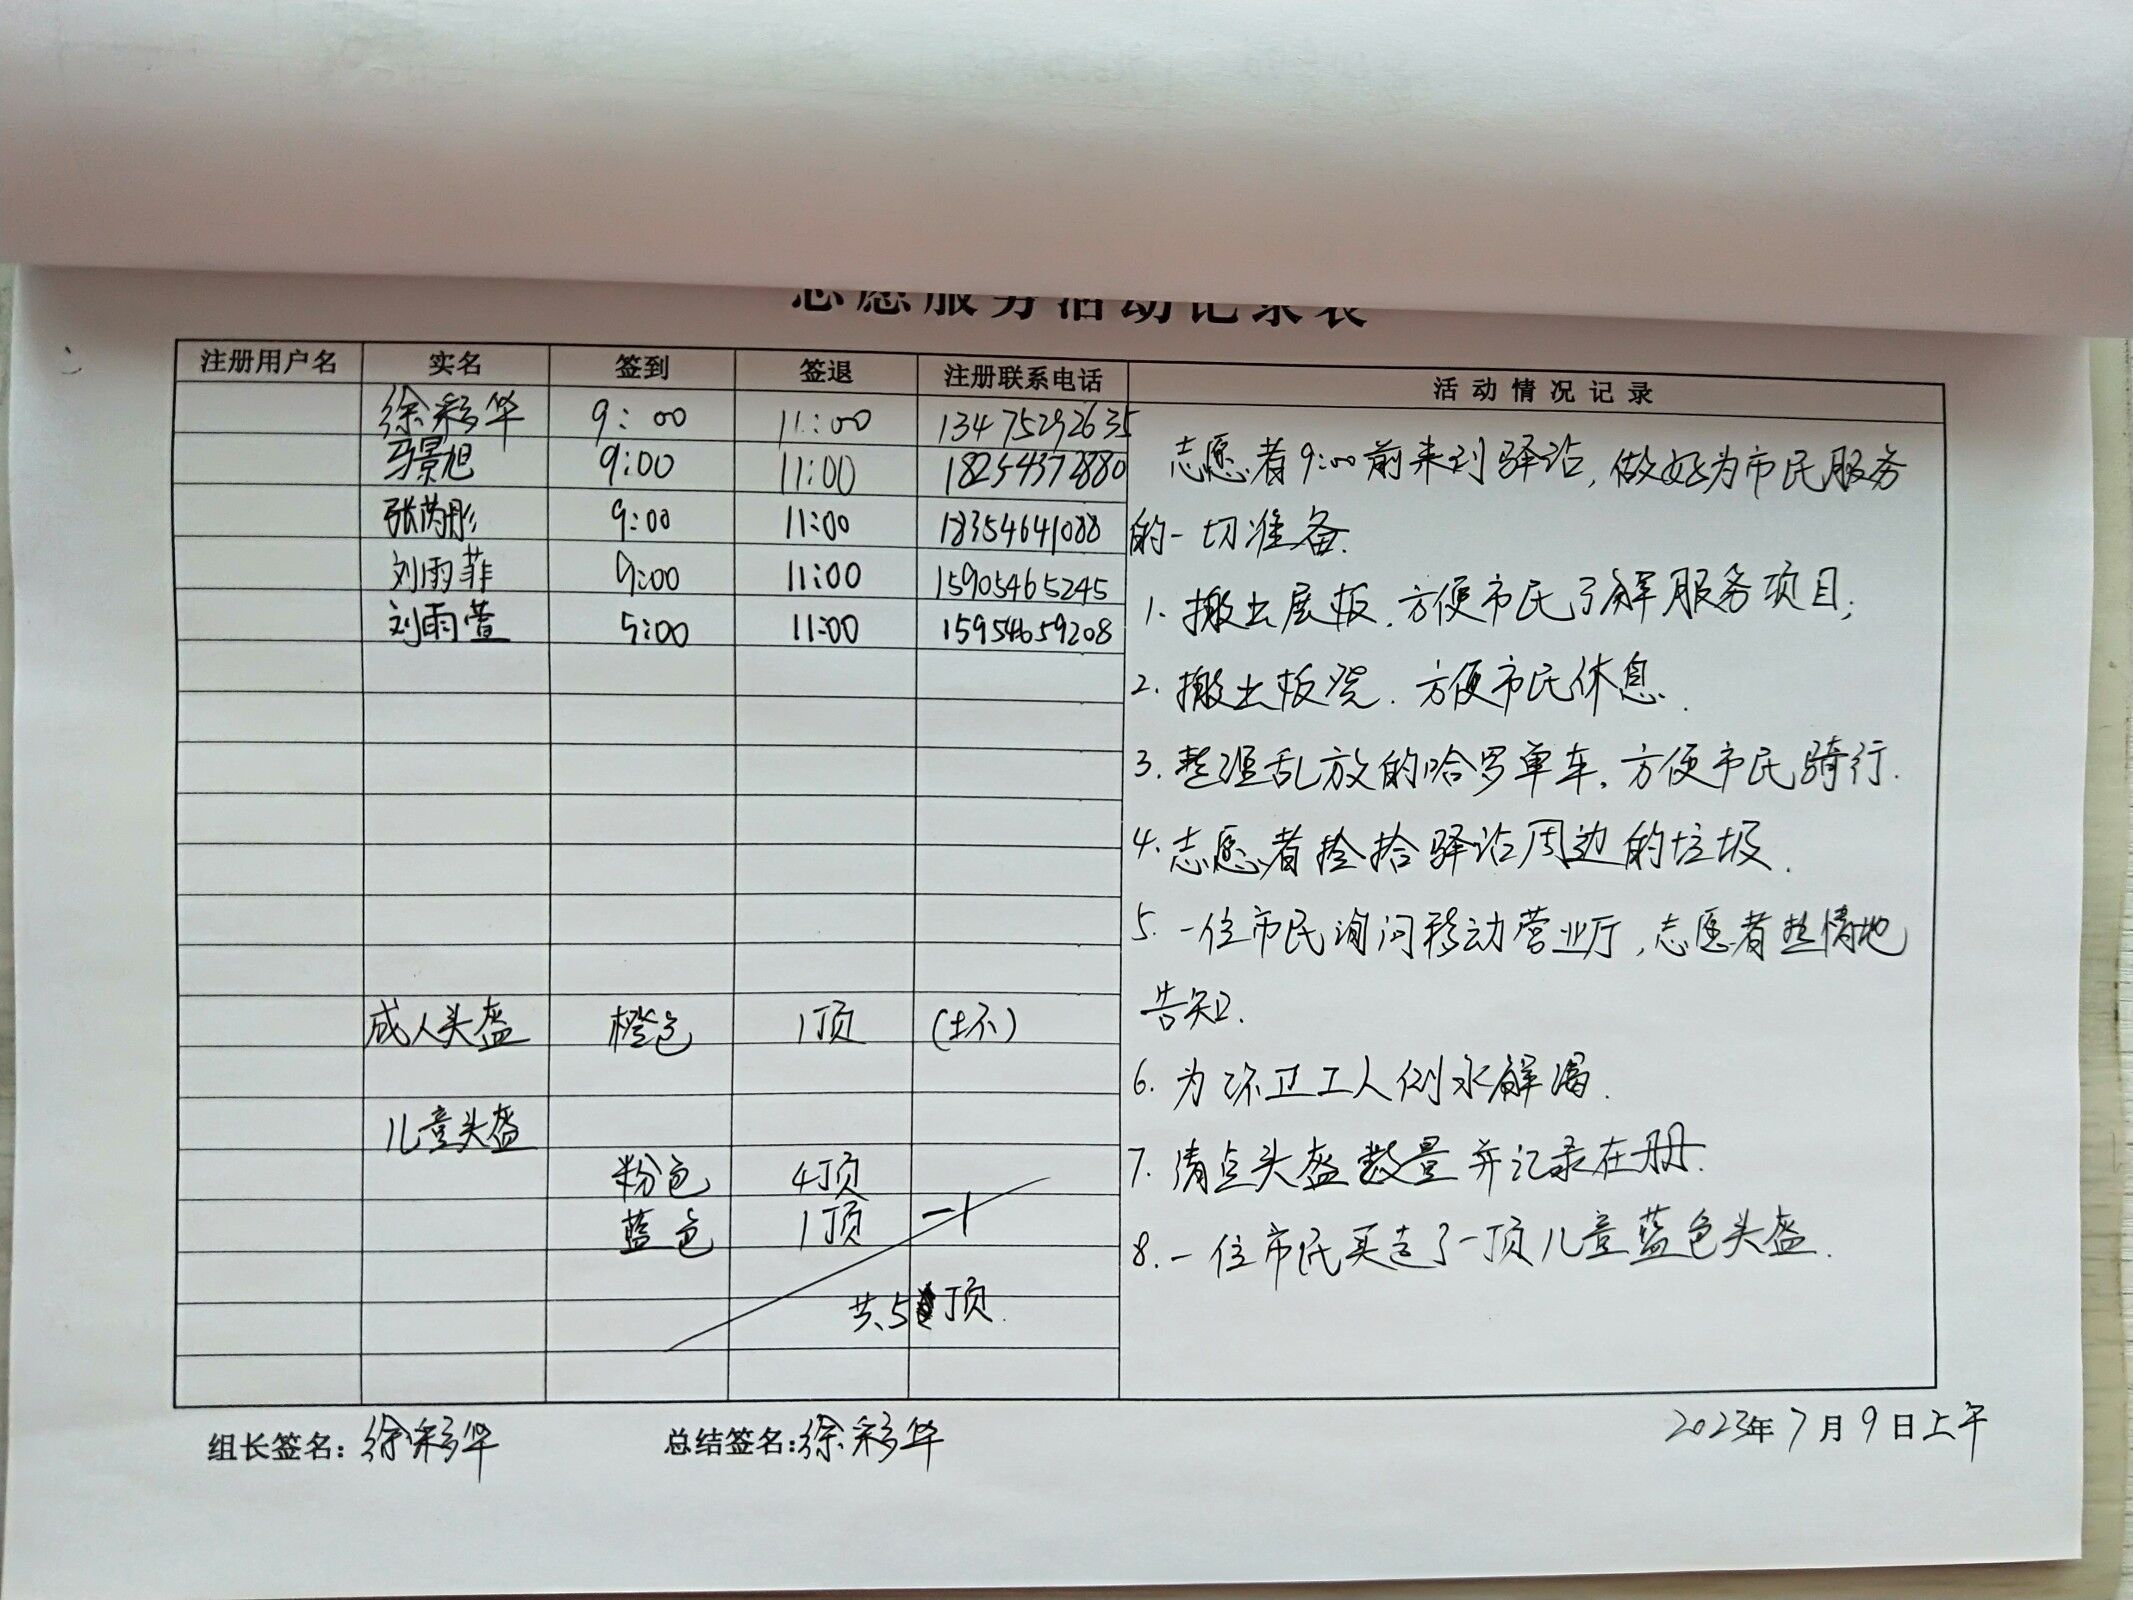 志愿服务活动记录表
注册用户名 实名 签到 签退 注册联系电话 活动情况记录
徐彩华 9:00 11:00 13475292635
马景旭 9:00 11:00 18254372880
张芮彤 9:00 11:00 18354641088
刘雨菲 9:00 11:00 15905465245
刘雨萱 9:00 11:00 15954659208
成人头盔 橙色 1顶 (坏)
儿童头盔
粉色 4顶
蓝色 1顶 -1
共5顶.
志愿者9:00前来到驿站,做好为市民服务
的一切准备.
1. 搬出展板.方便市民了解服务项目;
2. 搬出板凳.方便市民休息.
3. 整理乱放的哈罗单车.方便市民骑行.
4. 志愿者捡拾驿站周边的垃圾.
5. 一位市民询问移动营业厅,志愿者热情地
告知.
6. 为环卫工人倒水解渴.
7. 清点头盔数量并记录在册.
8. 一位市民买走了一顶儿童蓝色头盔.
组长签名:徐彩华 总结签名:徐彩华 2023年7月9日上午